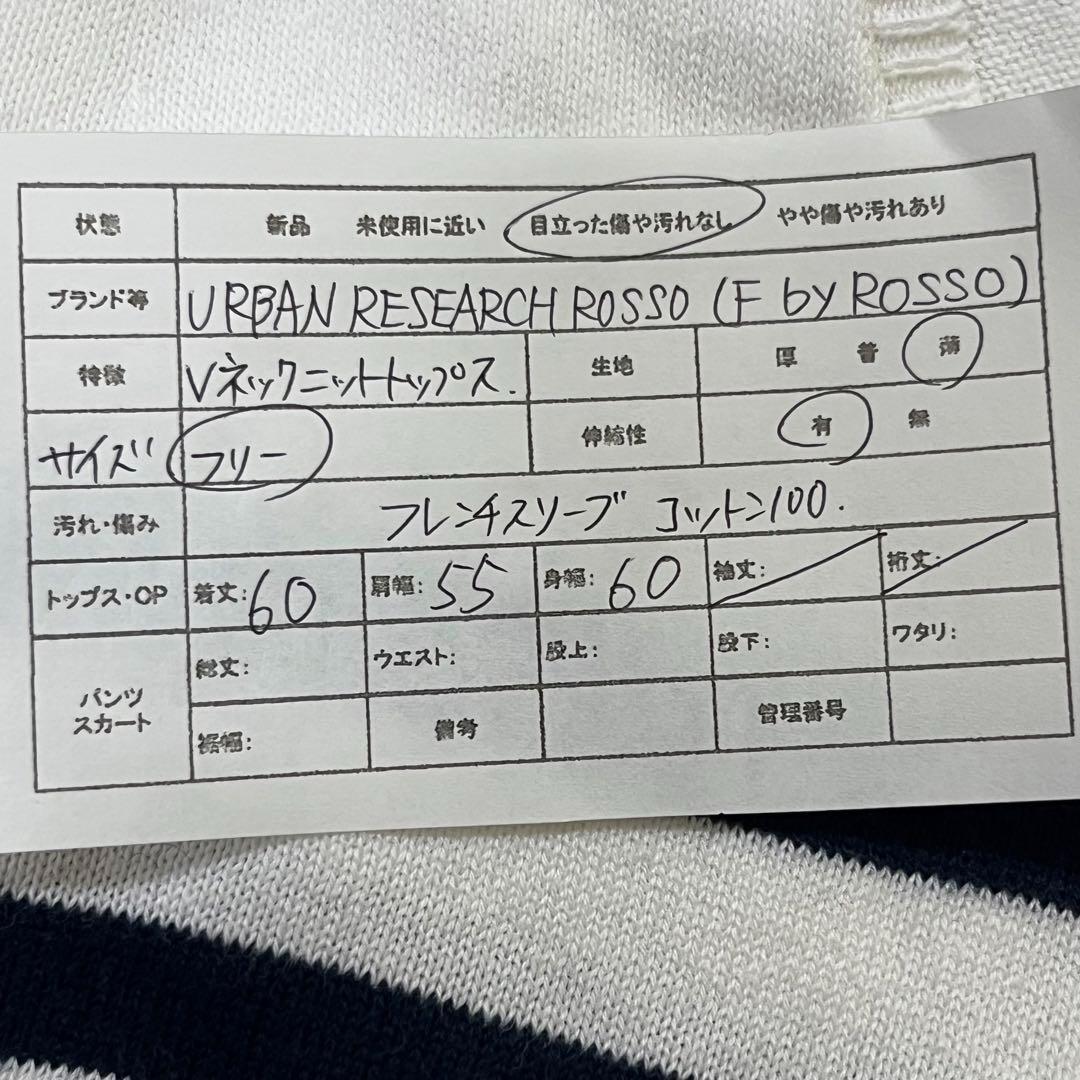 状態 新品 未使用に近い 目立った傷や汚れなし やや傷や汚れあり
ブランド等 URBAN RESEARCH ROSSO (F by ROSSO)
特徴 Vネックニットトップス. 生地 厚 普 薄
サイズ フリー 伸縮性 有 無
汚れ・傷み フレンチスリーブ コットン100.
トップス・OP 着丈: 60 肩幅: 55 身幅: 60 袖丈: 裄丈:
パンツ スカート 総丈: ウエスト: 股上: 股下: ワタリ:
裾幅: 備考 管理番号